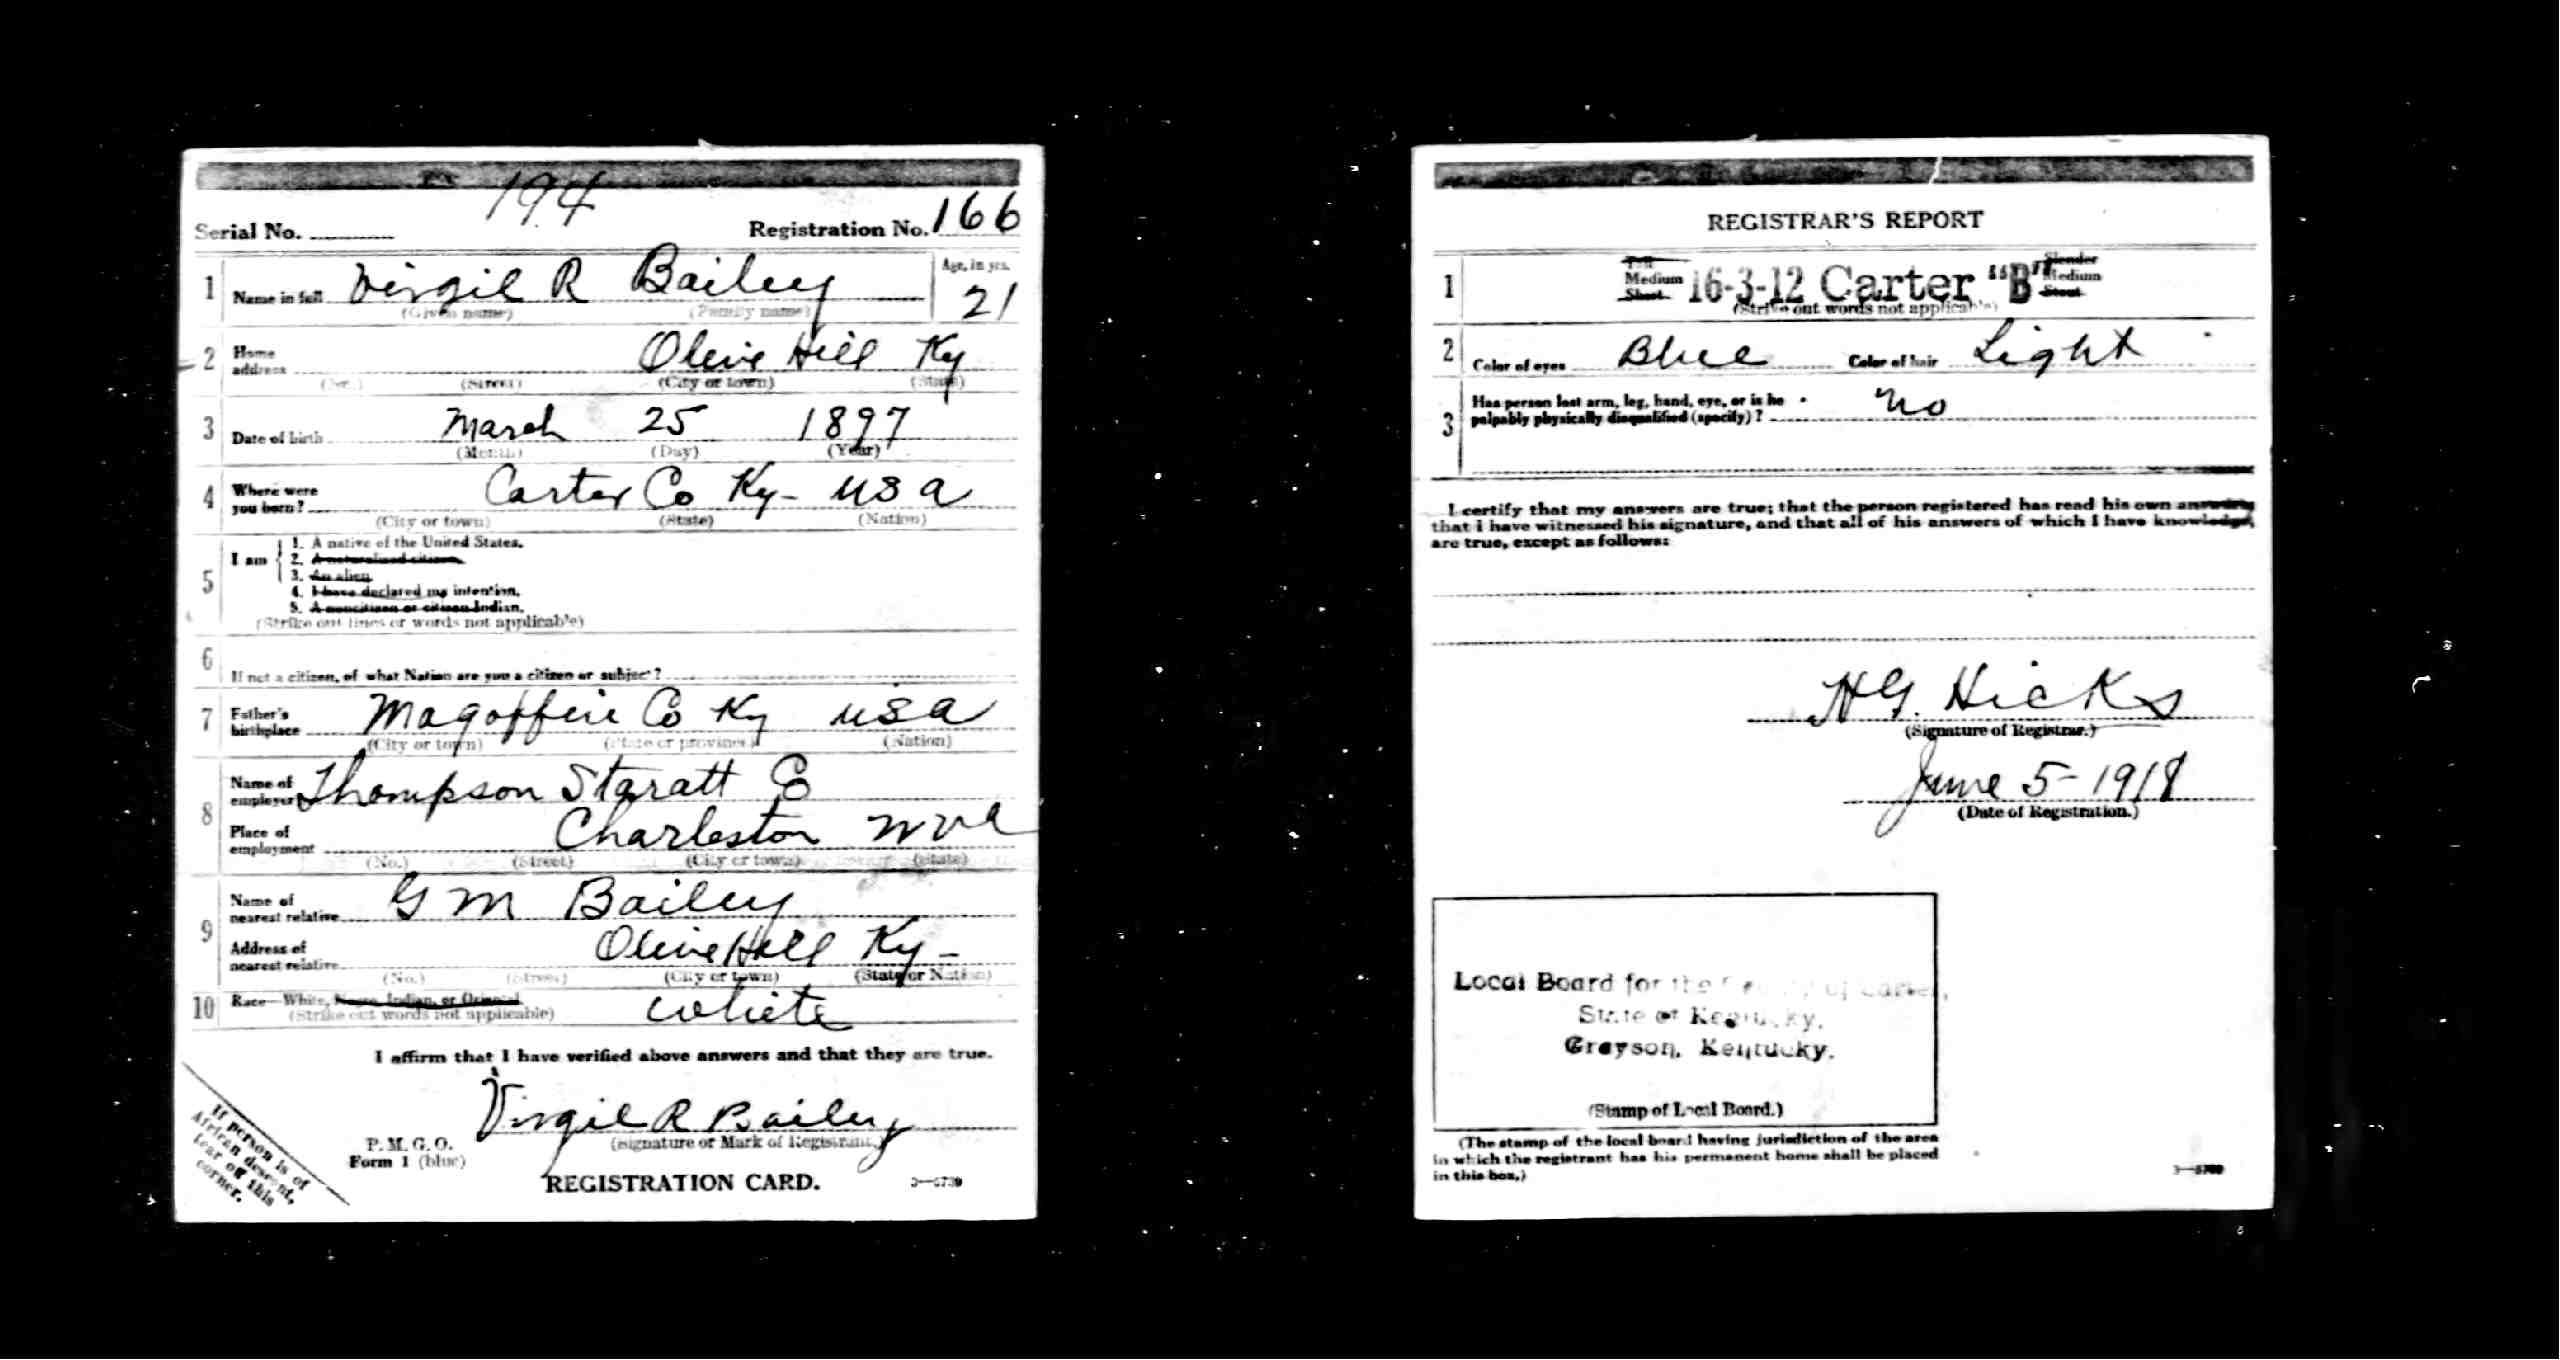 194
Serial No. Registration No. 166
1 Name in full Virgil R Bailey Age, in yrs. 21
(Given name) (Family name)
2 Home address Olive Hill Ky
(No.) (Street) (City or town) (State)
3 Date of birth March 25 1897
(Month) (Day) (Year)
4 Where were you born? Carter Co Ky- USA
(City or town) (State) (Nation)
5 I am
1. A native of the United States.
2. A naturalized citizen.
3. An alien
4. I have declared my intention.
5. A noncitizen or citizen Indian.
(Strike out lines or words not applicable)
6 If not a citizen, of what Nation are you a citizen or subject?
7 Father's birthplace Magoffin Co Ky USA
(City or town) (State or province) (Nation)
8 Name of employer Thompson Staratt Co
Place of employment Charleston W Va
(No.) (Street) (City or town) (State)
9 Name of nearest relative G M Bailey
Address of nearest relative Olive Hill Ky-
(No.) (Street) (City or town) (State or Nation)
10 Race—White, Negro, Indian, or Oriental White
(Strike out words not applicable)
I affirm that I have verified above answers and that they are true.
Virgil R Bailey
(Signature or Mark of Registrant.)
P. M. G. O.
Form 1 (blue)
REGISTRATION CARD.
If person is
African descent,
tear off this
corner.
REGISTRAR'S REPORT
1 Tall Medium Short 16-3-12 Carter "B" Slender Medium Stout
(Strike out words not applicable)
2 Color of eyes Blue Color of hair Light
3 Has person lost arm, leg, hand, eye, or is he
palpably physically disqualified (specify)? No
I certify that my answers are true; that the person registered has read his own answers
that I have witnessed his signature, and that all of his answers of which I have knowledge,
are true, except as follows:
H G. Hicks
(Signature of Registrar.)
June 5-1918
(Date of Registration.)
Local Board for the County of Carter,
State of Kentucky,
Grayson, Kentucky.
(Stamp of Local Board.)
(The stamp of the local board having jurisdiction of the area
in which the registrant has his permanent home shall be placed
in this box.)